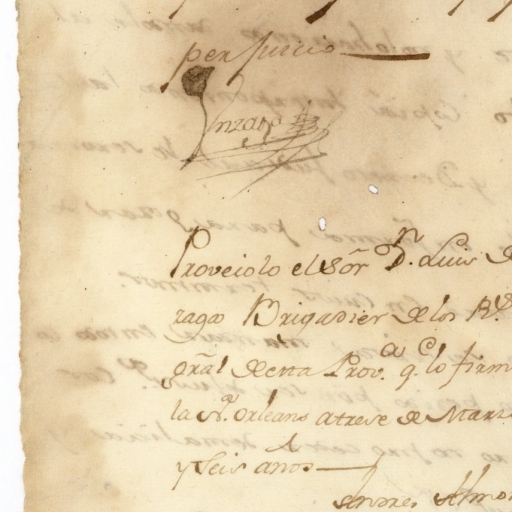 perjuicio
Unzaga
Proveiolo el S.or D.n Luis de
zaga Brigadier de los R.s
gral de esta Prov.a q.e lo firm
la N.a Orleans a trese de Marz
y seis años
Andres Almo